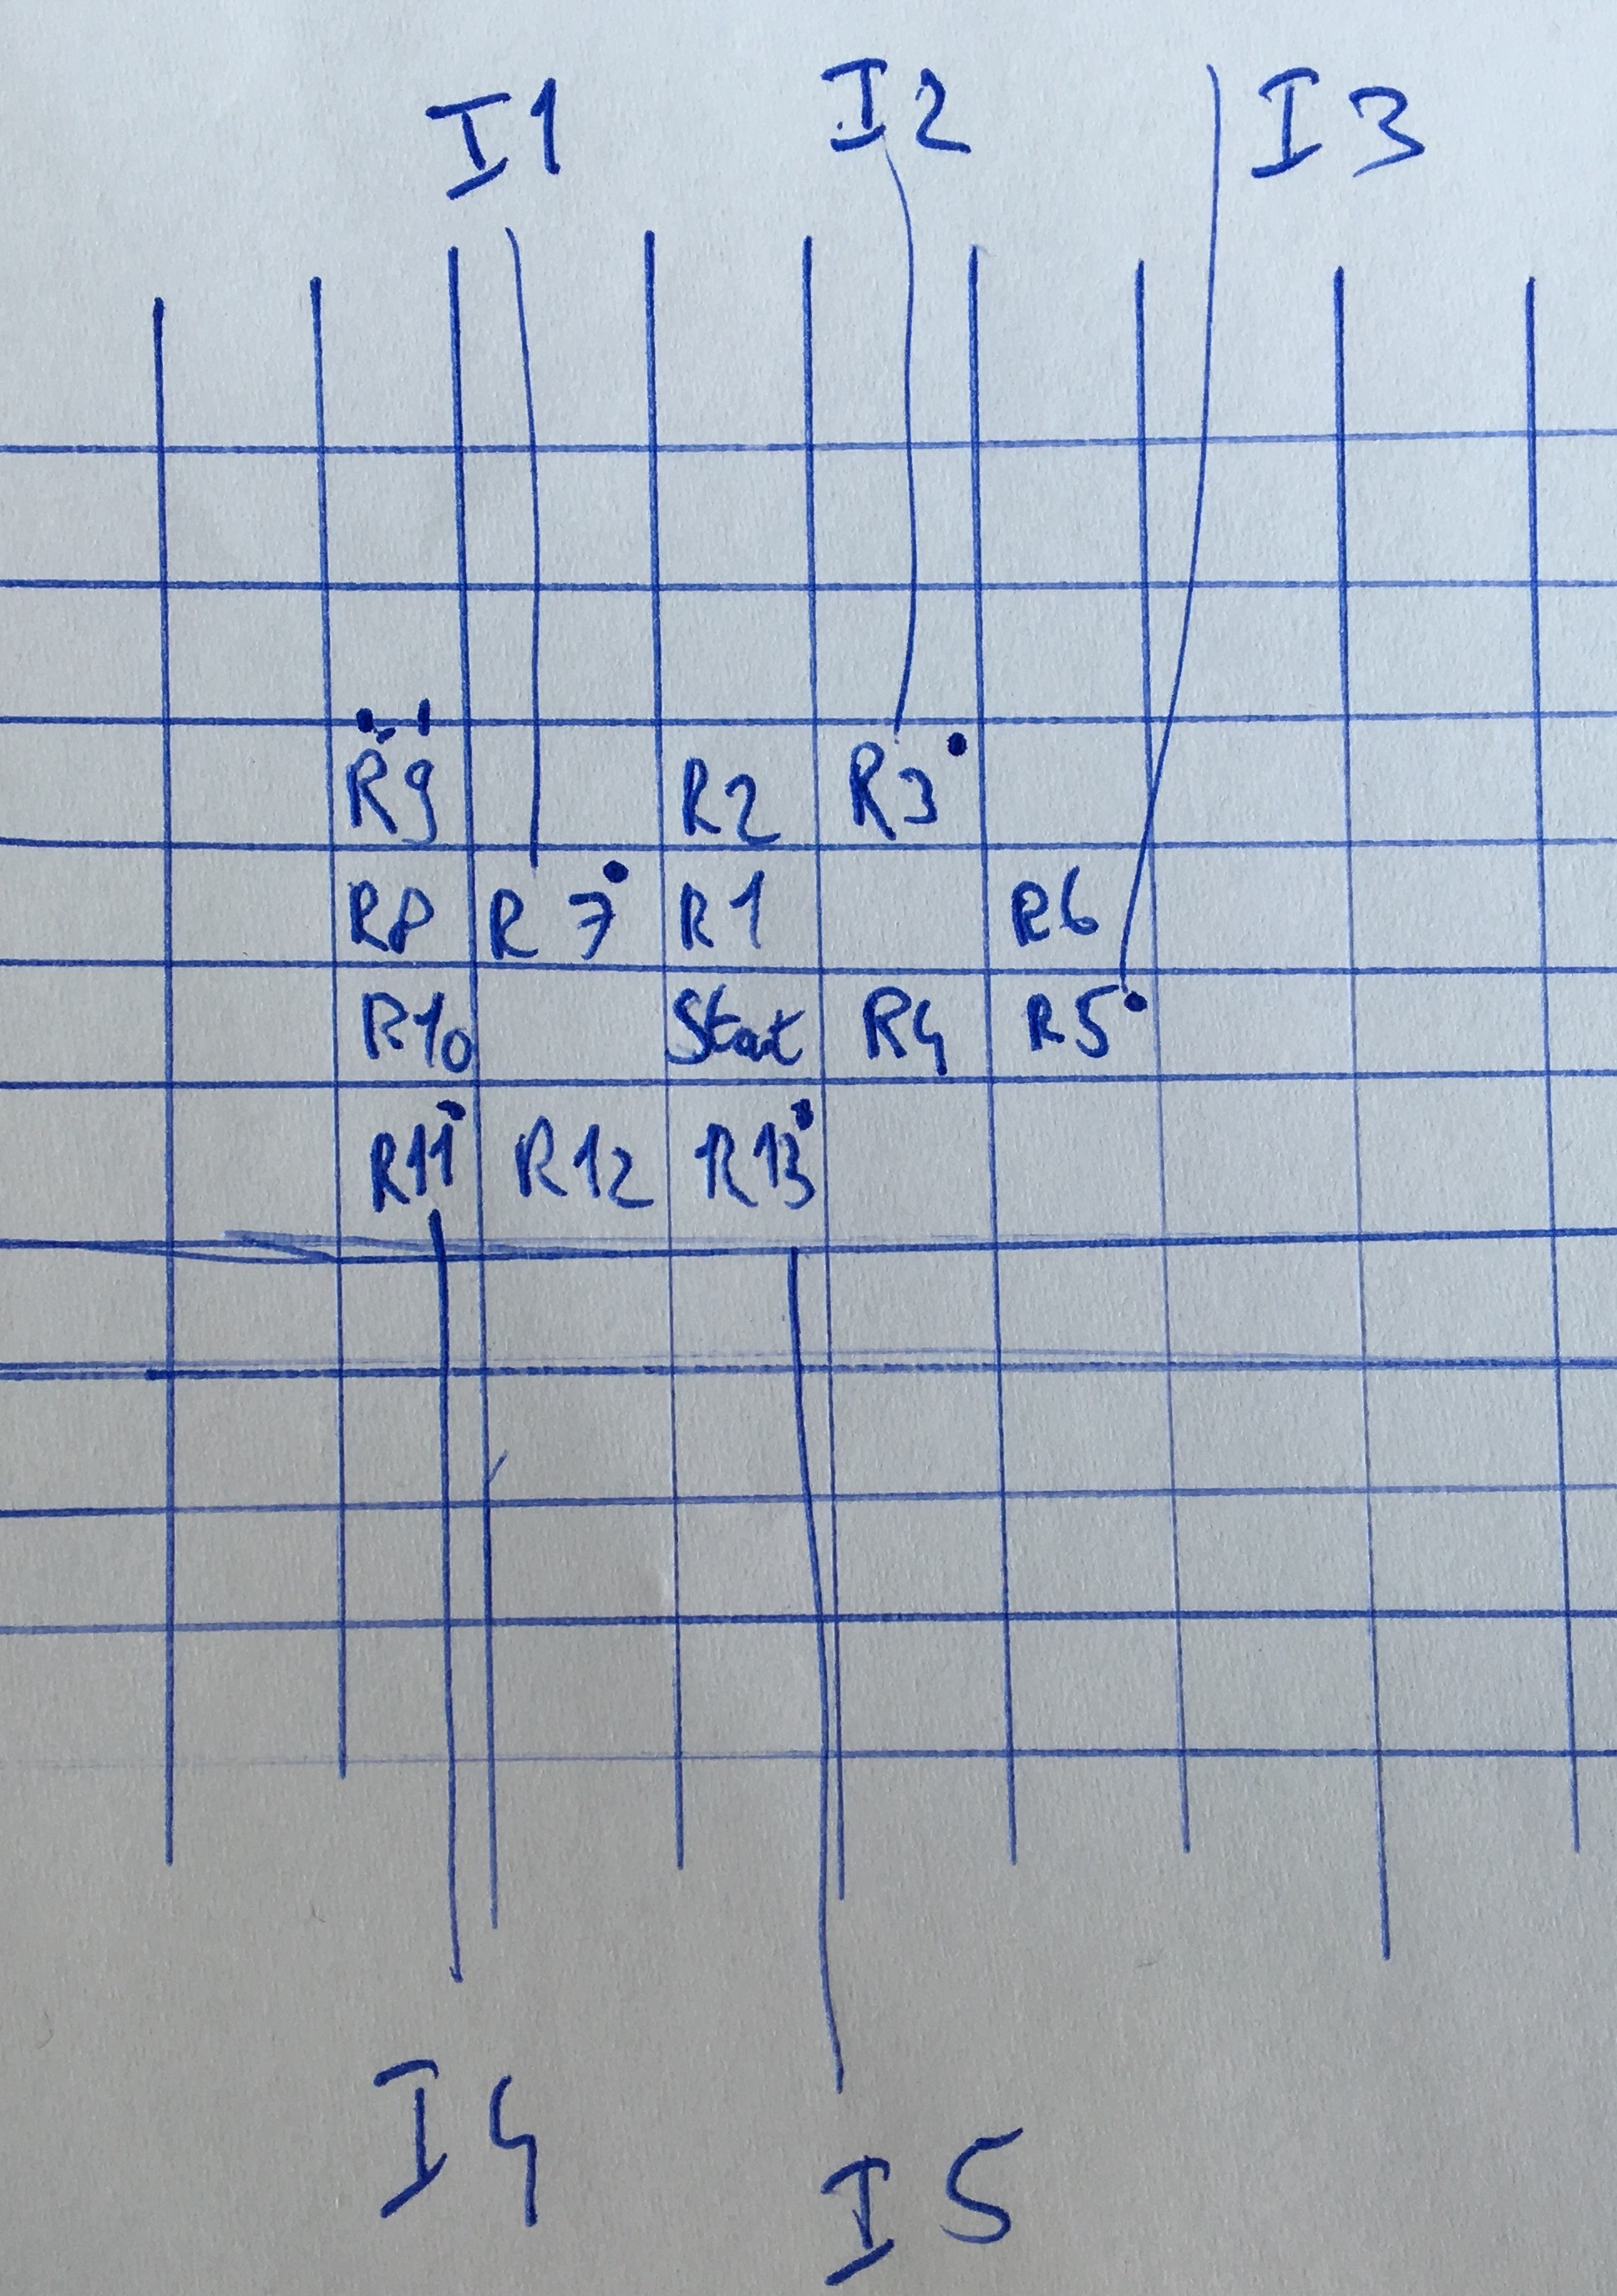 I1 I2 I3
R9 R2 R3
R8 R7 R1 R6
R10 Start R4 R5
R11 R12 R13
I4 I5